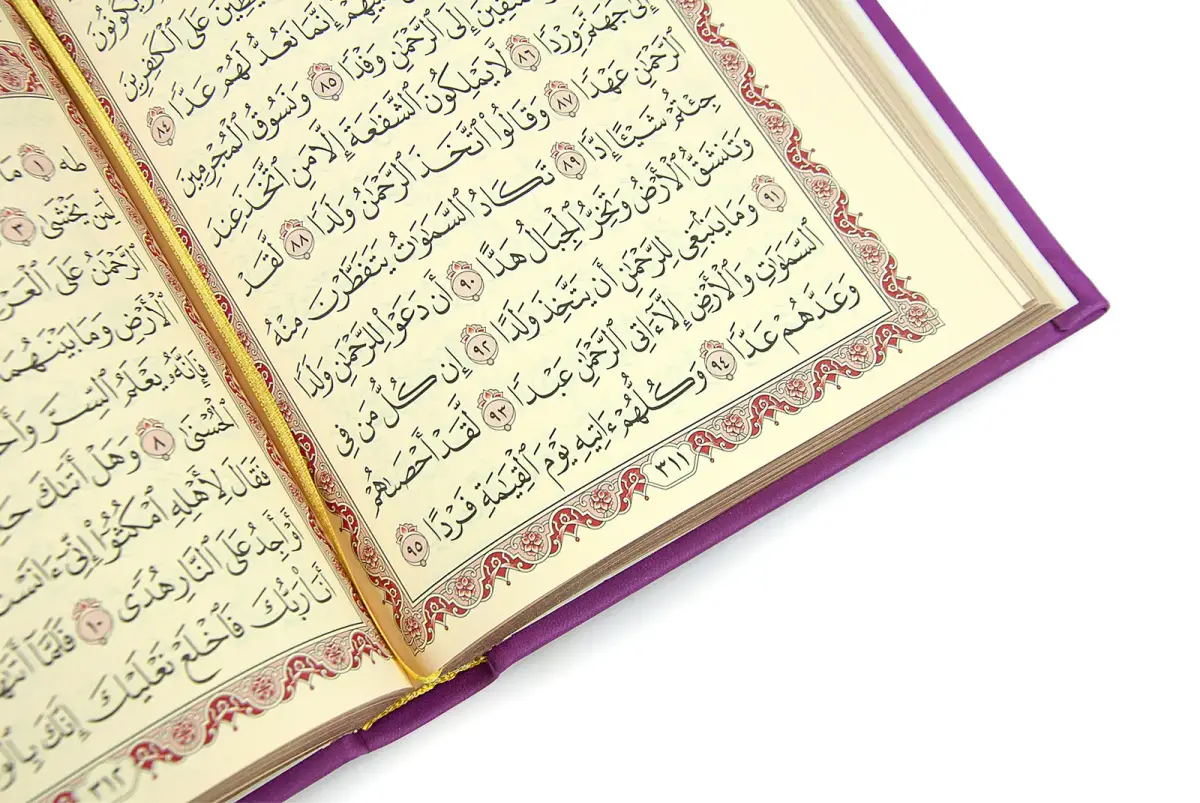 وَيَكُونُونَ
عَلَى ٱلْكَٰفِرِينَ
إِنَّمَا نَعُدُّ لَهُمْ عَدًّا ٨٤
إِلَى ٱلرَّحْمَٰنِ وَفْدًا ٨٥ وَنَسُوقُ ٱلْمُجْرِمِينَ
إِلَىٰ جَهَنَّمَ وِرْدًا ٨٦ لَّا يَمْلِكُونَ ٱلشَّفَٰعَةَ إِلَّا مَنِ ٱتَّخَذَ عِندَ
ٱلرَّحْمَٰنِ عَهْدًا ٨٧ وَقَالُوا۟ ٱتَّخَذَ ٱلرَّحْمَٰنُ وَلَدًا ٨٨ لَّقَدْ
جِئْتُمْ شَيْـًٔا إِدًّا ٨٩ تَكَادُ ٱلسَّمَٰوَٰتُ يَتَفَطَّرْنَ مِنْهُ
وَتَنشَقُّ ٱلْأَرْضُ وَتَخِرُّ ٱلْجِبَالُ هَدًّا ٩٠ أَن دَعَوْا۟ لِلرَّحْمَٰنِ وَلَدًا
٩١ وَمَا يَنۢبَغِى لِلرَّحْمَٰنِ أَن يَتَّخِذَ وَلَدًا ٩٢ إِن كُلُّ مَن فِى
ٱلسَّمَٰوَٰتِ وَٱلْأَرْضِ إِلَّآ ءَاتِى ٱلرَّحْمَٰنِ عَبْدًا ٩٣ لَّقَدْ أَحْصَىٰهُمْ
وَعَدَّهُمْ عَدًّا ٩٤ وَكُلُّهُمْ ءَاتِيهِ يَوْمَ ٱلْقِيَٰمَةِ فَرْدًا ٩٥
٣١١
طه ١ مَآ
لِّمَن يَخْشَىٰ ٣
ٱلرَّحْمَٰنُ عَلَى
ٱلْأَرْضِ وَمَا بَيْنَهُمَا
فَإِنَّهُۥ يَعْلَمُ ٱلسِّرَّ
ٱلْحُسْنَىٰ ٨ وَهَلْ أَتَىٰكَ
فَقَالَ لِأَهْلِهِ ٱمْكُثُوٓا۟ إِنِّىٓ
أَوْ أَجِدُ عَلَى ٱلنَّارِ هُدًى ١٠ فَلَمَّآ
أَنَا۠ رَبُّكَ فَٱخْلَعْ نَعْلَيْكَ إِنَّكَ
٣١٢